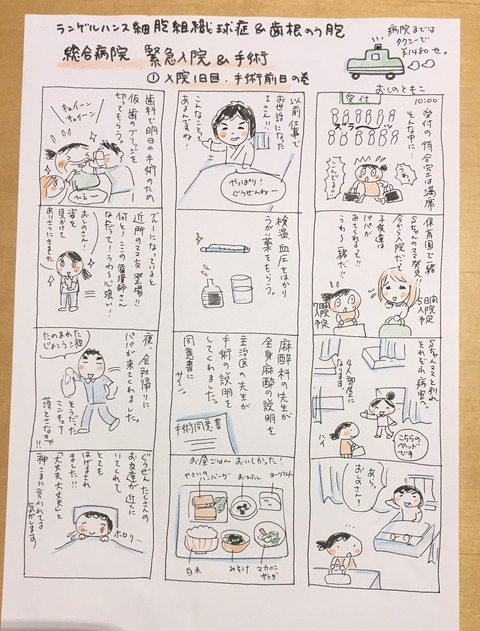 ランゲルハンス細胞組織球症&歯根のう胞
総合病院 緊急入院&手術
①入院1日目・手術前日の巻
病院までは
タクシーで
¥1480也。
おしのともこ
10:00
受付
受付の待合室は満席
そんな中に…
うわ
保育園で一緒
Sちゃんのママ発見!!
今から入院だって
子供達は
パパが
みてくれてます!!
うわ〜一緒だ!!
7日間
入院
予定
5日間
入院
予定
Sちゃんママと別れ
それぞれ病室へ
4人部屋に
なります
こちらの
ベッドです
ハイ
あら、
おしのさん?
以前仕事で
お世話になった
Iさん!!
こんなこと
あるんですね
やっぱり!
ぐうぜんねー
検温、血圧をはかり
うがい薬をもらう。
麻酔科の先生が
全身麻酔の説明を
主治医の先生が
手術の説明を
してくれました。
同意書に
サイン。
手術同意書
お昼ごはん おいしかった!
やさいのハンバーグ
おひたし
ヨーグルト
白米
みそ汁
マカロニ
サラダ
歯科で明日の手術のため
仮歯のブリッジを
切ってもらう。
キュイーン
キュイーン
ひぇ〜
ブルーになっていると
近所のママ友登場!!
何と!この看護師さん
なんだって!うわ〜心強い!
おしのさん!
姿を
見かけて
夜、会社帰りに
パパが来てくれました。
たのまれた
じょこうえき
そうだった
マニキュア
落とさなきゃ!!
ぐうぜんたくさんの
お友達が近くに
いてくれて
とても
はげまされ
ました!!
「大丈夫、大丈夫」と
神さまに言われてる
気がします
ホロリ…